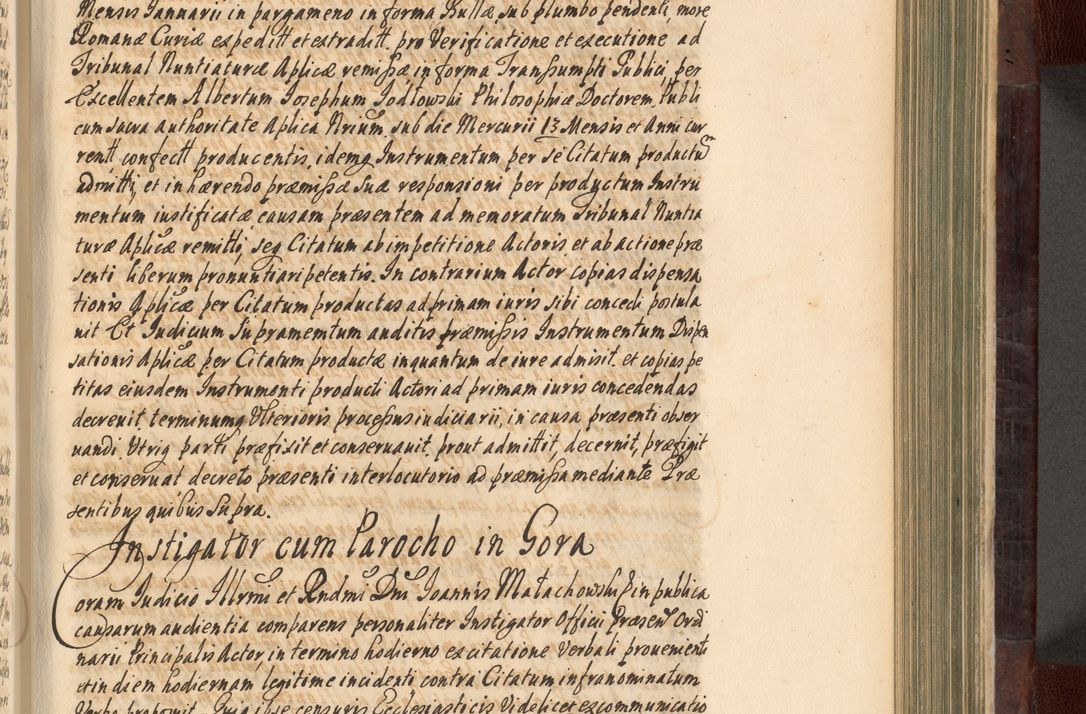 Mensis Januarii in pargameno in forma Bullæ sub plumbo pendenti, more
Romanæ Curiæ expeditt et extraditt. pro Verificatione et executione ad
Tribunal Nuntiaturæ Aplicæ remissæ in forma Transsumpti Publici, per
Excellentem Albertum Josephum Jodłowski Philosophiæ Doctorem, Publi
cum sacra authoritate Aplica Nrium, sub die Mercurii 13 Mensis et Anni cur
rentt confectt producentis, idemq Instrumentum per se Citatum productũ
admitti, et inhærendo præmissæ suæ responsioni per productum Instru
mentum iustificatæ causam præsentem ad memoratum Tribunal Nuntia
turæ Aplicæ remitti, seq Citatum ab impetitione Actoris et ab actione præ
senti liberum pronuntiari petentis. In contrarium Actor copias dispensa
tionis Aplicæ per Citatum productas ad primam iuris sibi concedi postula
uit Et Judicium Supramemtum auditis præmissis Instrumentum Dispen
sationis Aplicæ per Citatum productæ inquantum de iure admisit. et copias pe
titas eiusdem Instrumenti producti Actori ad primam iuris concedendas
decreuit, terminumq Ulterioris processus iudiciarii, in causa præsenti obser
uandi Utriq parti præfixit et conseruauit, prout admittit, decernit, præfigit
et conseruat decreto præsenti interlocutorio ad præmissa mediante Præ
sentibus quibus supra.
Instigator cum Parocho in Gora
Coram Judicio Illrmi et Rndmi Dni Joannis Małachowski in publica
causarum audientia comparens personaliter Instigator Officii Præsent Ordi
narii Principalis Actor, in termino hodierno ex citatione Verbali proueniente
et in diem hodiernam legitime incidenti contra Citatum infranominatum
Verbo proposuit. Quia ipse censuris Ecclesiasticis Videlicet excommunicatio